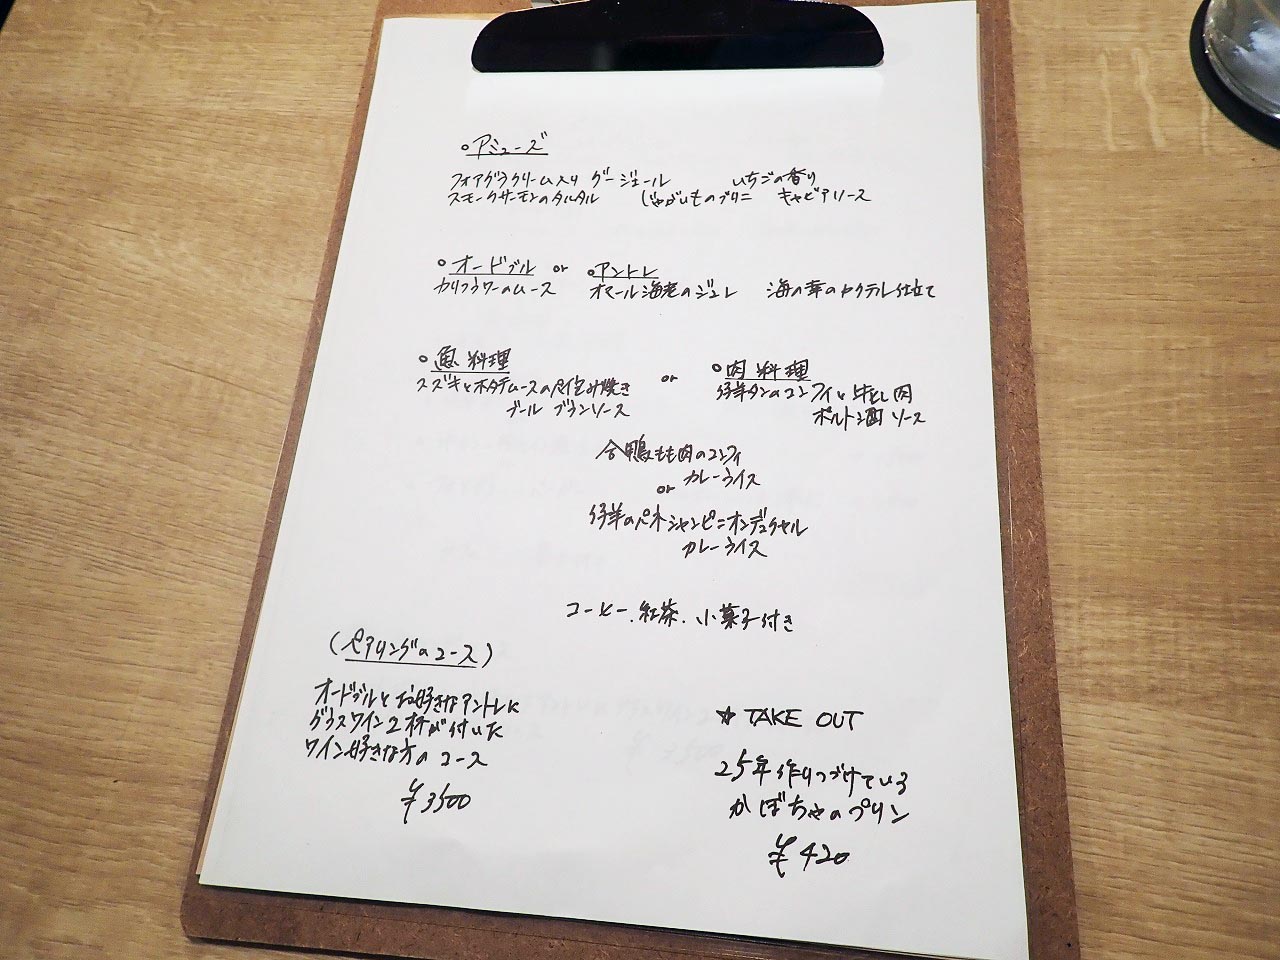 ○アミューズ
フォアグラクリーム入り グージェール いちごの香り
スモークサーモンのタルタル じゃがいものブリニ キャビアソース
○オードブル or ○アントレ
カリフラワーのムース オマール海老のジュレ 海の幸のカクテル仕立て
○魚料理 or ○肉料理
スズキとホタテムースのパイ包み焼き 仔羊タンのコンフィと牛ヒレ肉
ブールブランソース ポルト酒ソース
合鴨もも肉のコンフィ
カレーライス
or
仔羊のパネ シャンピニオンデュクセル
カレーライス
コーヒー.紅茶.小菓子付き
(ペアリングのコース)
オードブルとお好きなアントレに
グラスワイン2杯が付いた
ワイン好きな方のコース
¥3500
☆ TAKE OUT
25年作りつづけている
かぼちゃのプリン
¥420